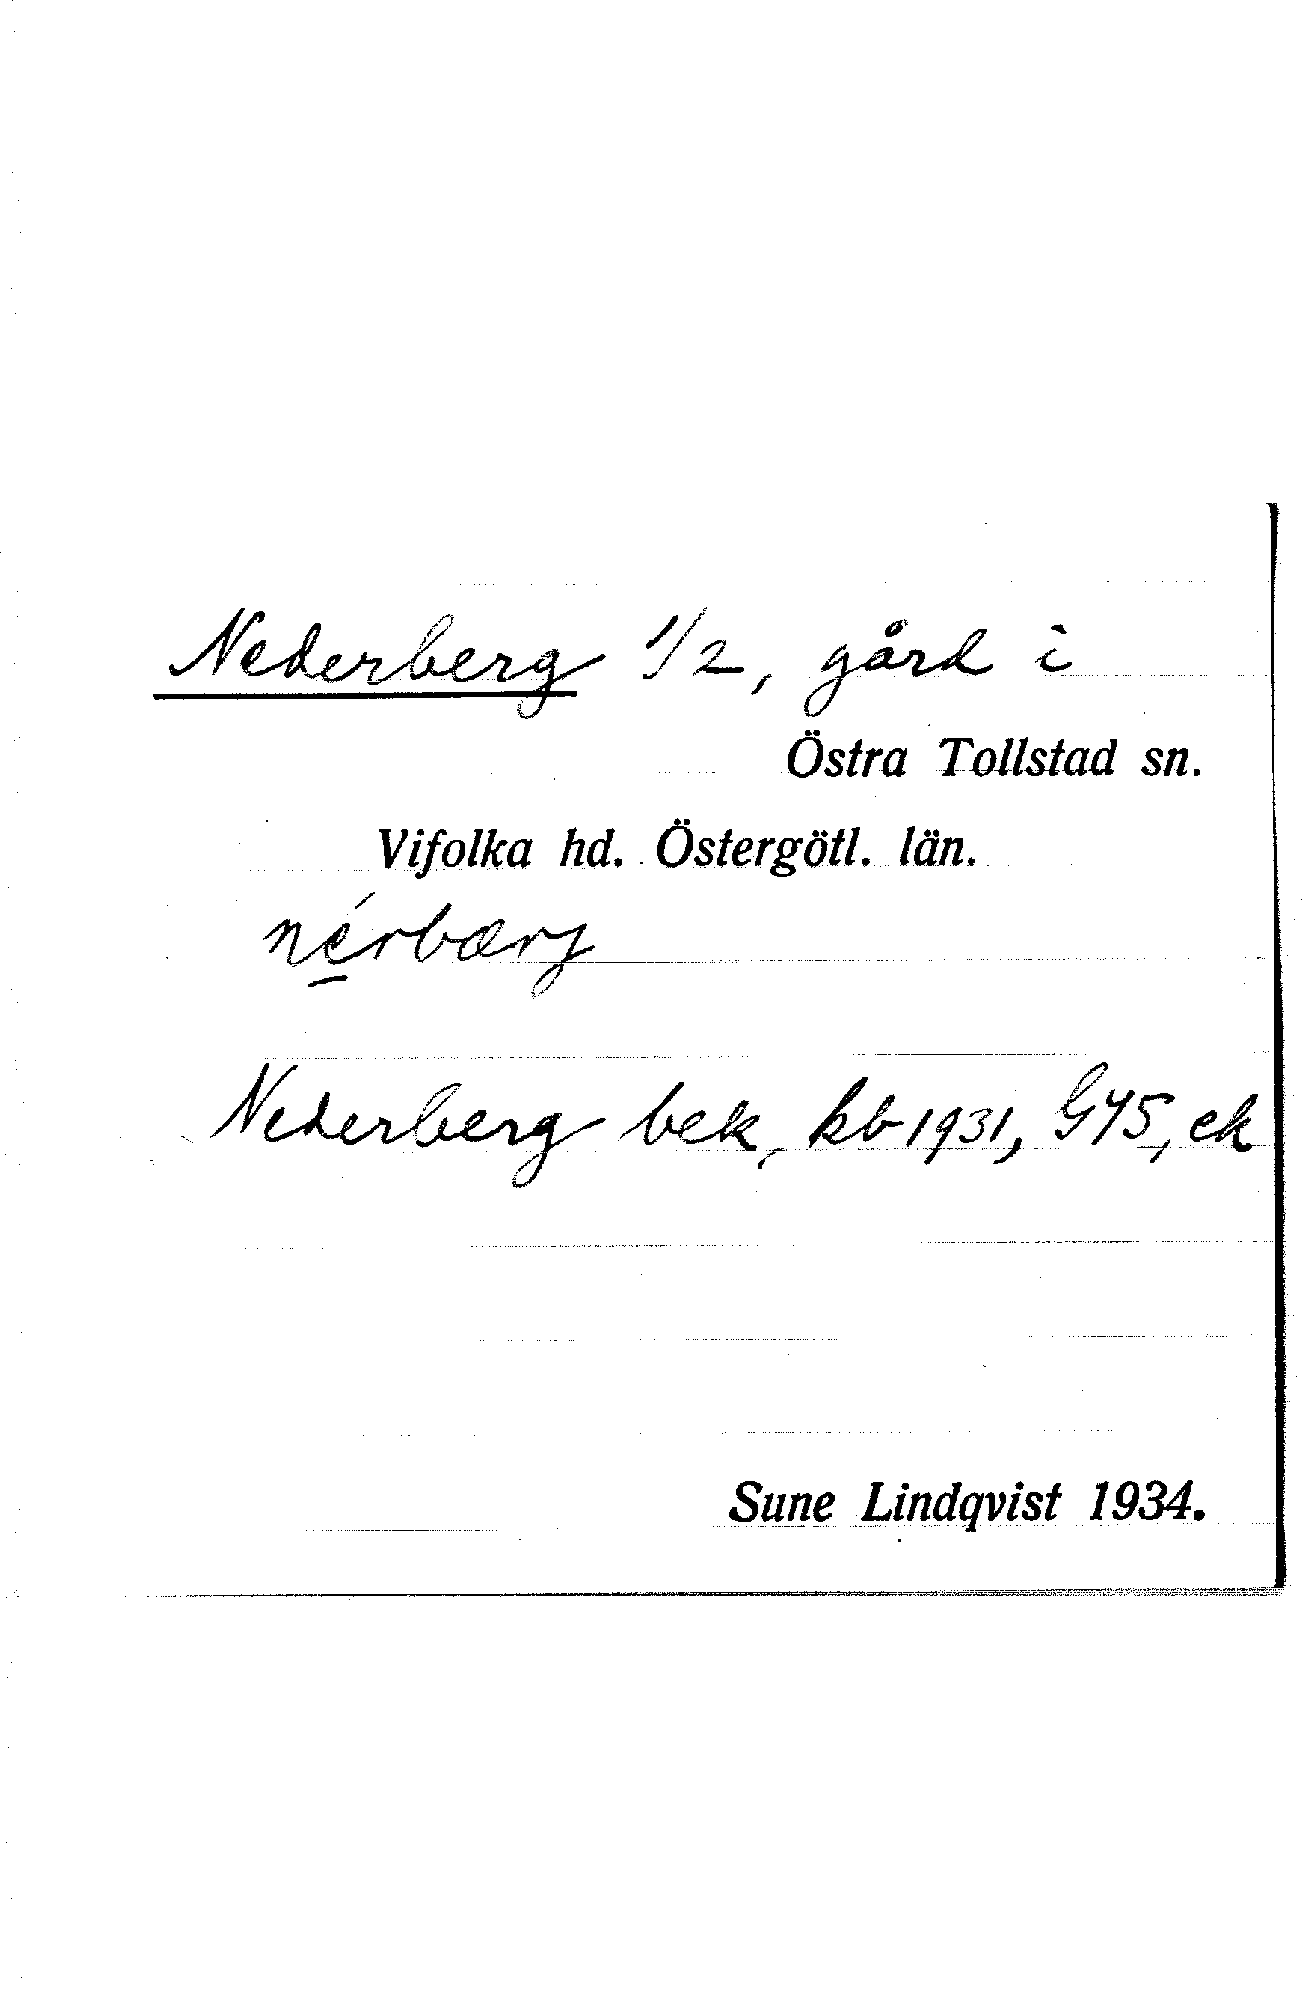 Nederberg 1/2, gård i
Östra Tollstad sn.
Vifolka hd. Östergötl. län.
né̱rbærj
Nederberg bek, kb 1931, G45, ek
Sune Lindqvist 1934.